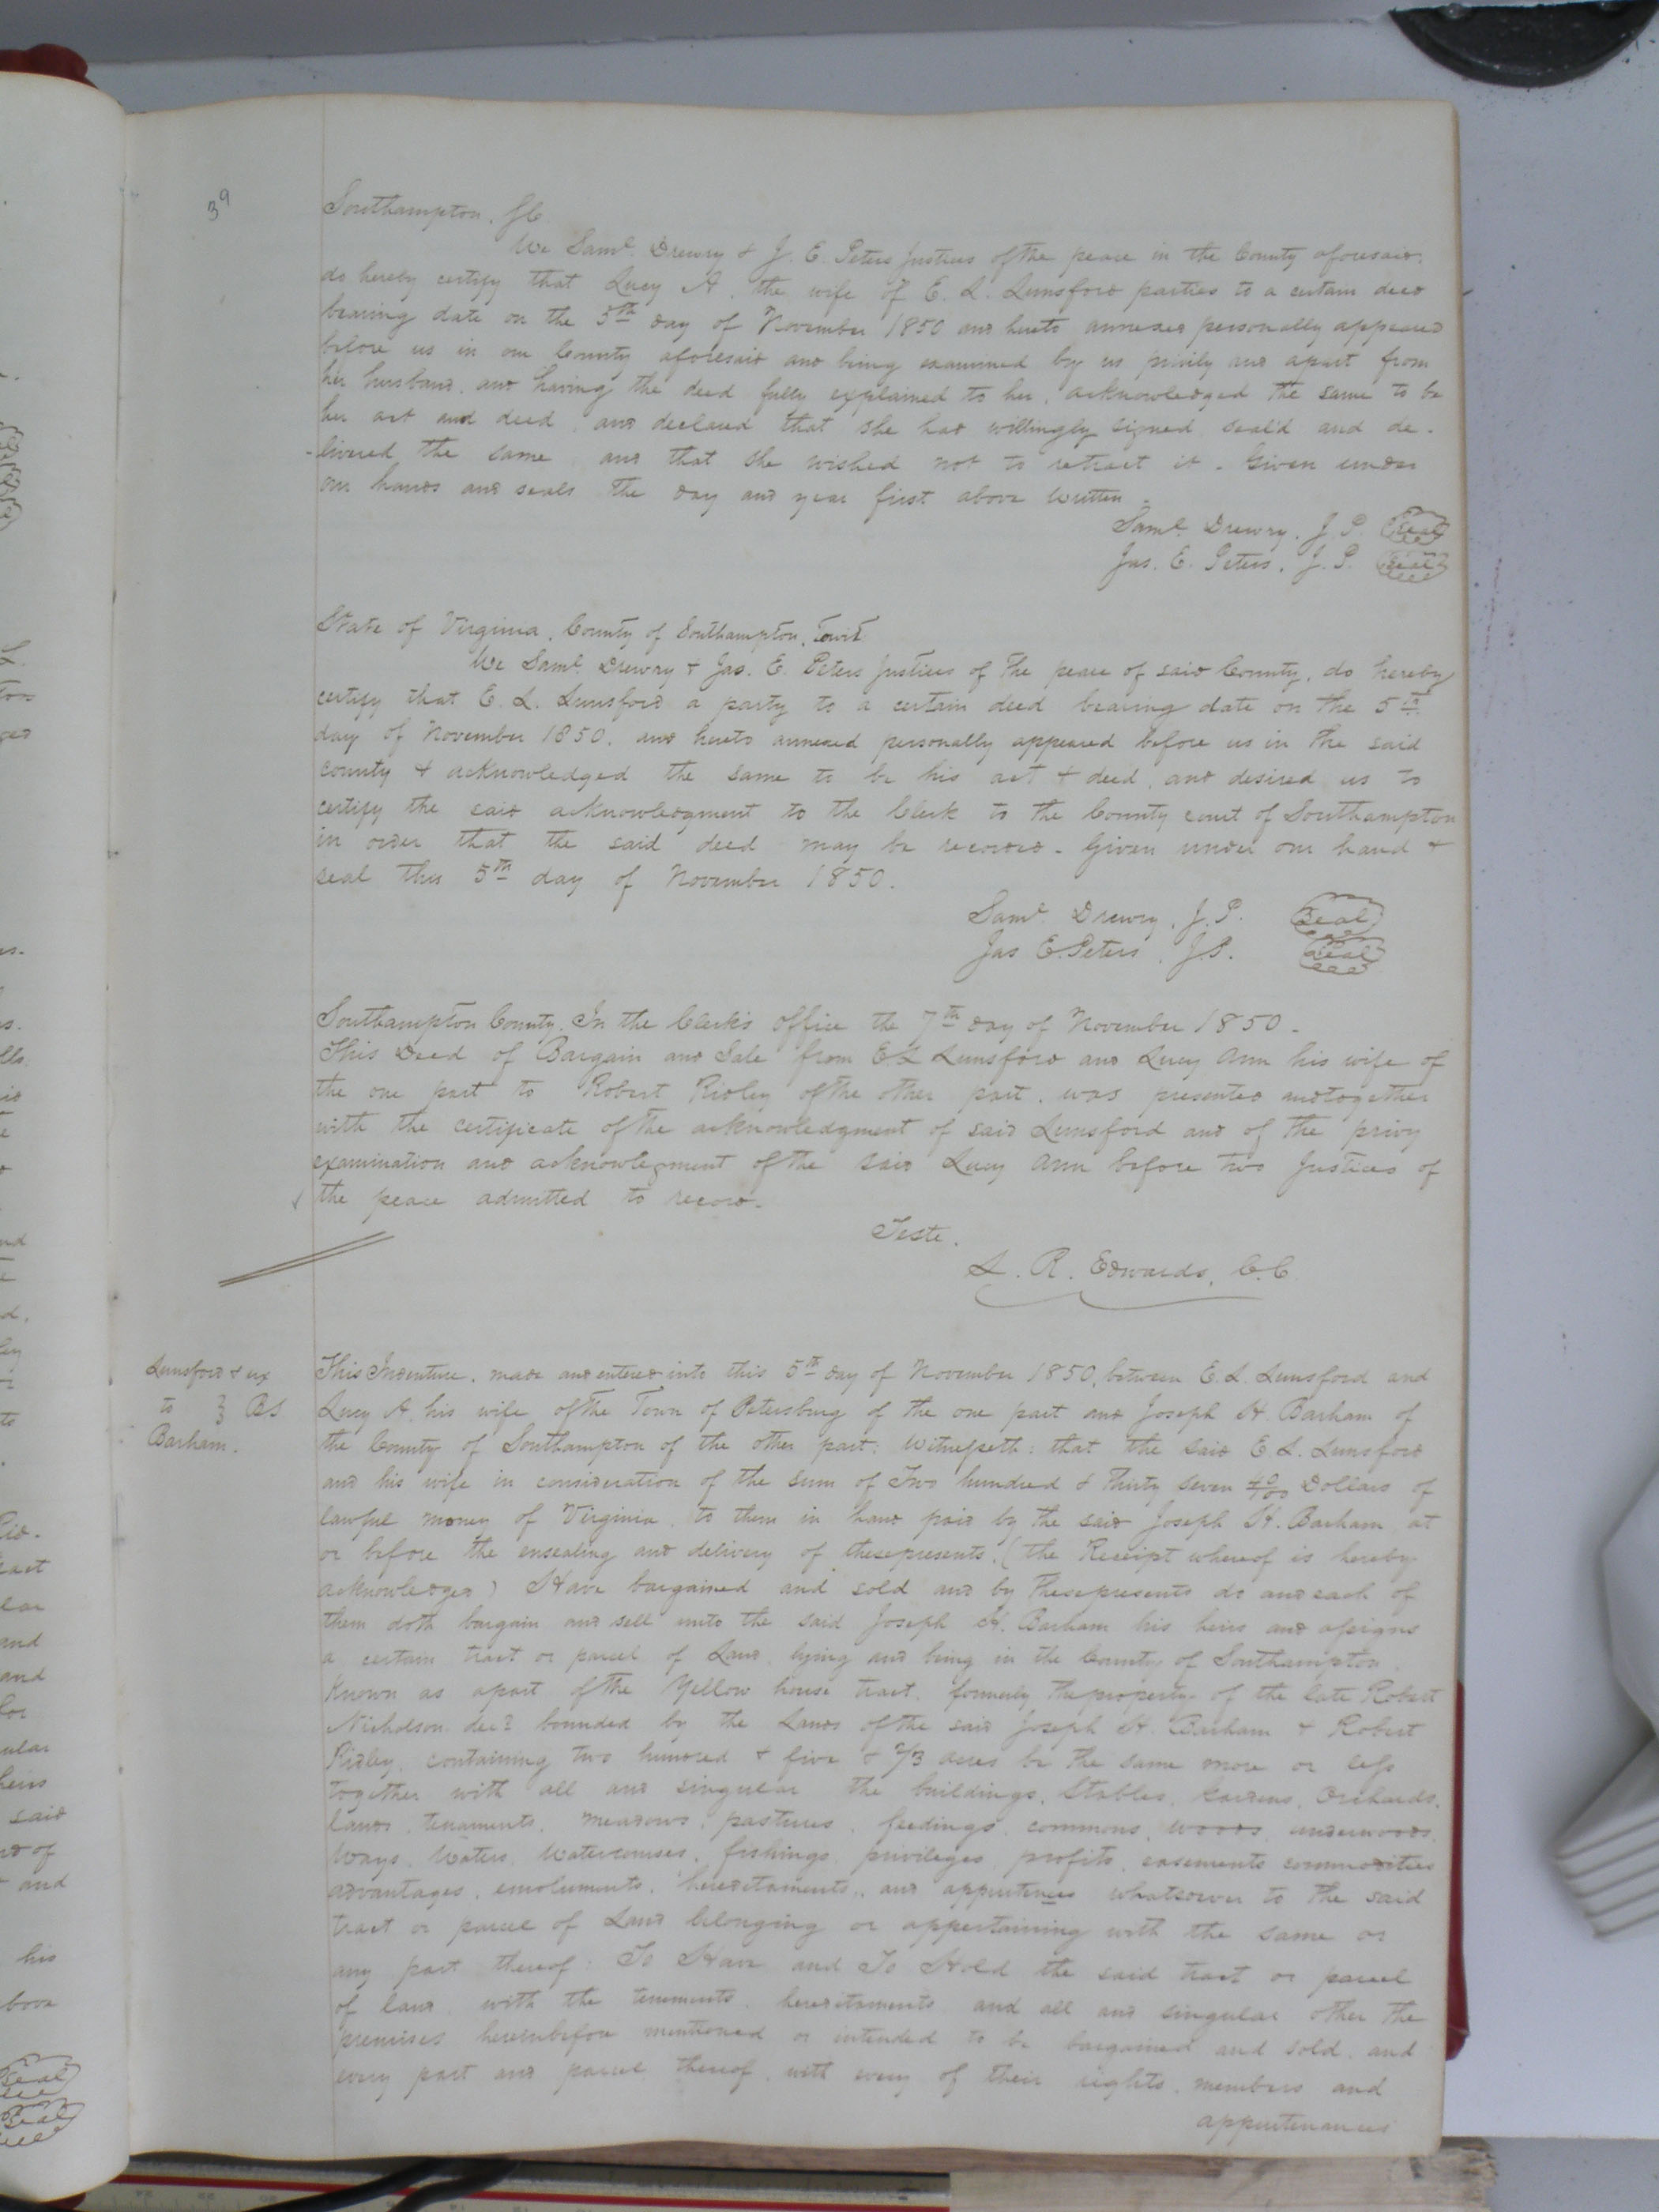 39
Southampton. Sc
We Saml. Drewry & J. E. Peters Justices of the peace in the County aforesaid.
do hereby certify that Lucy A. the wife of E. L. Lunsford parties to a certain deed
bearing date on the 5th day of November 1850 and hereto annexed personally appeared
before us in our County aforesaid and being examined by us privily and apart from
her husband. and having the deed fully explained to her, acknowledged the same to be
her act and deed, and declared that she had willingly signed, seal'd and de-
-livered the same, and that she wished not to retract it. Given under
our hands and seals the day and year first above written.
Saml. Drewry, J. P. Seal
Jas. E. Peters, J. P. Seal
State of Virginia, County of Southampton, Towit
We Saml. Drewry & Jas. E. Peters Justices of the peace of said County, do hereby
certify that E. L. Lunsford a party to a certain deed bearing date on the 5th
day of November 1850, and hereto annexed personally appeared before us in the said
county & acknowledged the same to be his act & deed, and desired us to
certify the said acknowledgment to the Clerk to the County court of Southampton
in order that the said deed may be recorded. Given under our hand &
seal this 5th day of November 1850.
Saml. Drewry, J. P. Seal
Jas E. Peters, J.P. Seal
Southampton County. In the Clerk's office the 7th day of November 1850.
This Deed of Bargain and Sale from E.L Lunsford and Lucy Ann his wife of
the one part to Robert Ridley of the other part, was presented and together
with the certificate of the acknowledgment of said Lunsford and of the privy
examination and acknowlegment of the said Lucy Ann before two Justices of
the peace admitted to record.
Teste.
L. R. Edwards, C.C.
Lunsford & ux
to } BS
Barham.
This Indenture, made and entered into this 5th day of November 1850, between E. L. Lunsford and
Lucy A. his wife of the Town of Petersburg of the one part and Joseph H. Barham of
the County of Southampton of the other part: Witnesseth: that the said E L. Lunsford
and his wife in consideration of the sum of Two hundred & Thirty seven 40/00 Dollars of
lawful money of Virginia, to them in hand paid by the said Joseph H. Barham at
or before the ensealing and delivery of these presents, (the Receipt whereof is hereby
acknowledged) Have bargained and sold and by these presents do and each of
them doth bargain and sell unto the said Joseph H. Barham his heirs and assigns
a certain tract or parcel of Land, lying and being in the County of Southampton
Known as apart of the Yellow house tract, formerly the property of the late Robert
Nicholson decd bounded by the Lands of the said Joseph H. Barham & Robert
Ridley, containing two hundred & five & 2/3 acres be the same more or less
together with all and singular the buildings, Stables, Gardens, Orchards,
lands, tenaments, meadows, pastures, feedings, commons, woods, underwoods,
Ways, Waters, Watercourses, fishings, privileges, profits, easements commodities
advantages, emoluments, hereditaments, and appurtences whatsoever to the said
tract or parcel of Land belonging or appertaining with the same or
any part thereof: To Have and To Hold the said tract or parcel
of land, with the tenements, hereditaments and all and singular other the
premises hereinbefore mentioned or intended to be bargained and sold, and
every part and parcel thereof, with every of their rights, members and
appurtenances